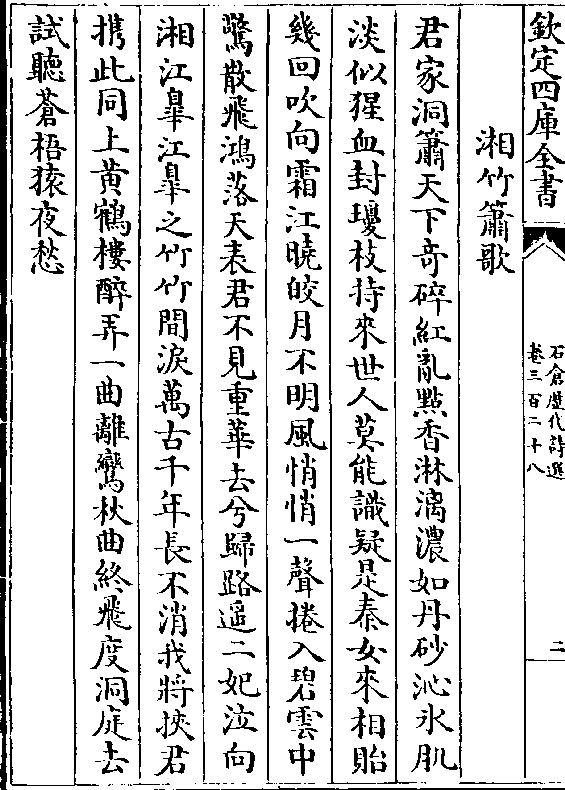 欽定四庫全書
石倉歷代詩選
卷三百二十八
二
湘竹簫歌
君家洞簫天下奇碎紅亂點香淋漓濃如丹砂沁氷肌
淡似猩血封瓊枝持來世人莫能識疑是秦女來相貽
幾回吹向霜江曉皎月不明風悄悄一聲捲入碧雲中
驚散飛鴻落天表君不見重華去兮歸路遥二妃泣向
湘江臯江臯之竹竹間淚萬古千年長不消我將挾君
携此同上黄鶴樓醉弄一曲離鸞秋曲終飛度洞庭去
試聽蒼梧猿夜愁